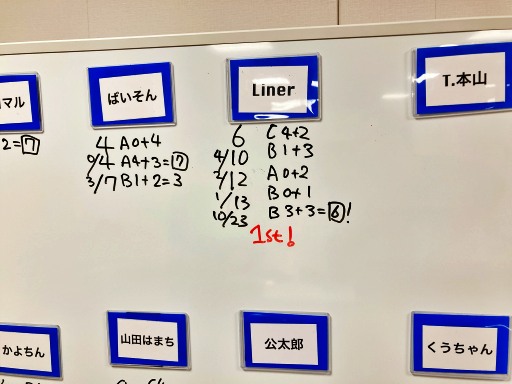 マル
ぱいそん
Liner
T.本山
2=7
4 A0+4
0/4 A4+3=7
3/7 B1+2=3
6 C4+2
4/10 B1+3
2/12 A0+2
1/13 B0+1
10/23 B3+3=6!
1st!
かよちん
山田はまち
公太郎
くうちゃん